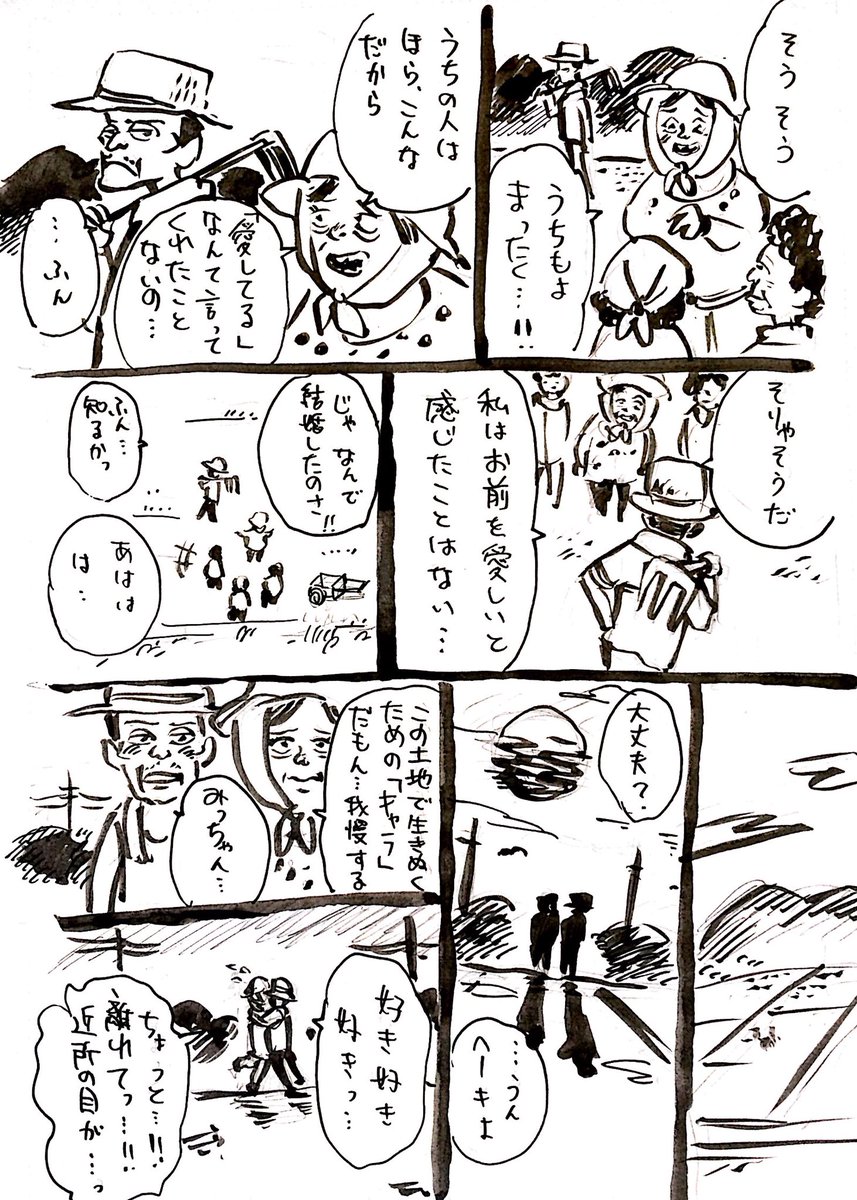 そうそう
うちもよ
まったく…!!
うちの人は
ほら、こんな
だから
「愛してる」
なんて言って
くれたこと
ないの…
…ふん
そりゃそうだ
私はお前を愛しいと
感じたことはない…
じゃなんで
結婚したのさ!!
ふん…
知るかっ
あはは
は…
大丈夫?
…うん
ヘーキよ
この土地で生きぬく
ための「キャラ」
だもん…我慢する
みっちゃん…
好き好き
好きっ…
ちょっと…!!
離れてっ…!!
近所の目が…っ